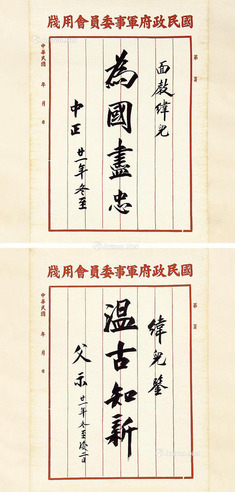 國民政府軍事委員會用牋
第 頁
面教緯兒
為國盡忠
中正 廿一年冬至
中華民國 年 月 日
國民政府軍事委員會用牋
第 頁
緯兒鑒
温古知新
父示 廿一年冬至後二日
中華民國 年 月 日